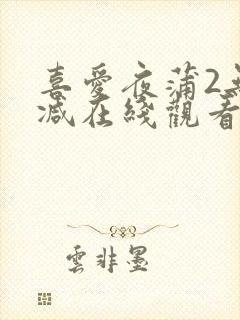 喜愛夜蒲2無
减在綫觀看
雲非墨